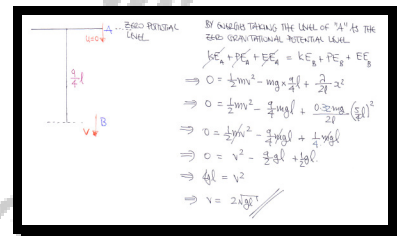 A ... ZERO POTENTIAL
LEVEL
u=0
9/4 l
B
V
BY ENERGIES TAKING THE LEVEL OF "A" AS THE
ZERO GRAVITATIONAL POTENTIAL LEVEL
KE_A + PE_A + EE_A = KE_B + PE_B + EE_B
⇒ 0 = 1/2 mv² - mg × 9/4 l + λ/2l x²
⇒ 0 = 1/2 mv² - 9/4 mgl + 0.32mg/2l (5/4 l)²
⇒ 0 = 1/2 mv² - 9/4 mgl + 1/4 mgl
⇒ 0 = v² - 9/2 gl + 1/2 gl
⇒ 4gl = v²
⇒ V = 2√gl